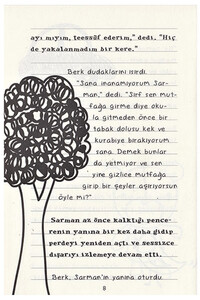 ayı mıyım, teessüf ederim," dedi. "Hiç
de yakalanmadım bir kere."
Berk dudaklarını ısırdı.
"Sana inanamıyorum Sar-
man," dedi. "Sırf sen mut-
fağa girme diye oku-
la gitmeden önce bir
tabak dolusu kek ve
kurabiye bırakıyorum
sana. Demek bunlar
da yetmiyor ve sen
yine gizlice mutfağa
girip bir şeyler aşırıyorsun
öyle mi?"
Sarman az önce kalktığı pence-
renin yanına bir kez daha gidip
perdeyi yeniden açtı ve sessizce
dışarıyı izlemeye devam etti.
Berk, Sarman'ın yanına oturdu.
8